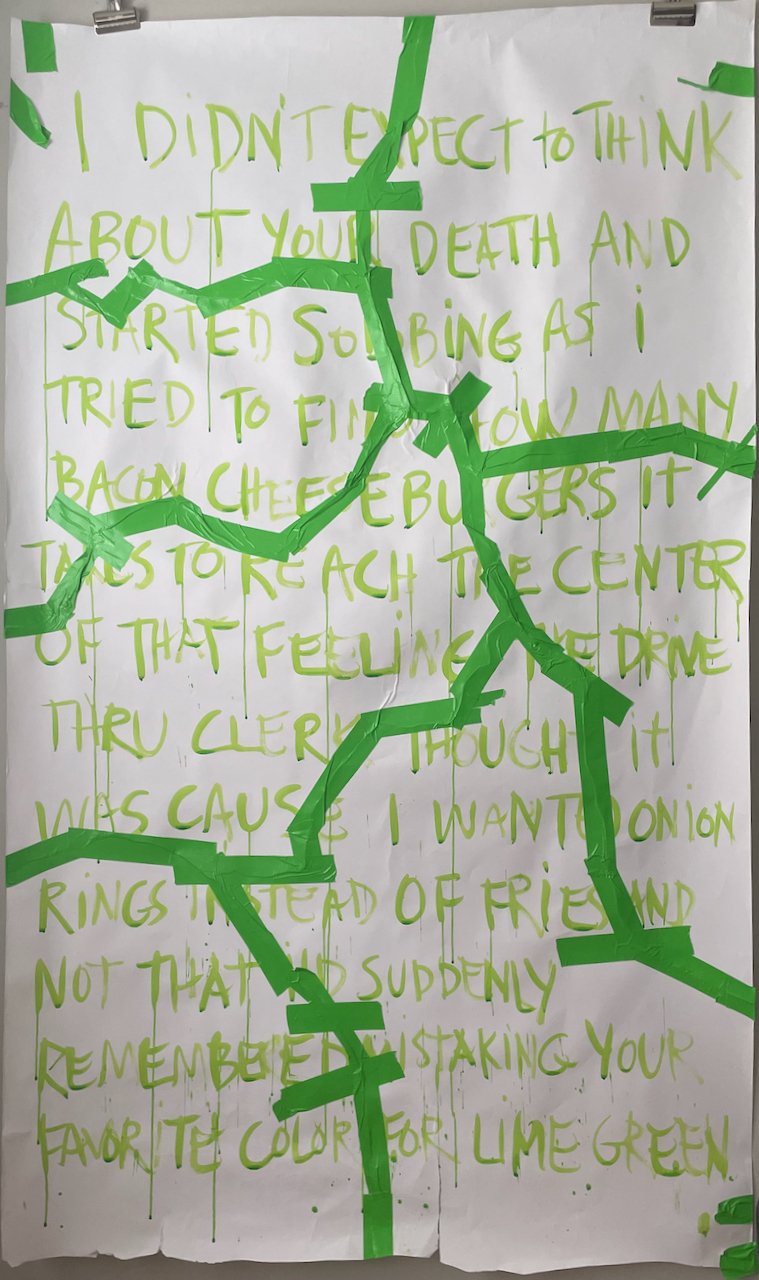 I DiDN'T EXPECT to THiNK
ABOUT YOUR DEATH AND
STARTED SOBBiNG AS i
TRIED TO FIND HOW MANY
BACON CHEESEBURGERS iT
TAKES TO REACH THE CENTER
OF THAT FEELiNG THE DRiVE
THRU CLERK THOUGHT it
WAS CAUSE I WANTED ONiON
RiNGS INSTEAD OF FRiES AND
NOT THAT I'D SUDDENLY
REMEMBERED MiSTAKiNG YOUR
FAVORiTE COLOR FOR LIME GREEN.